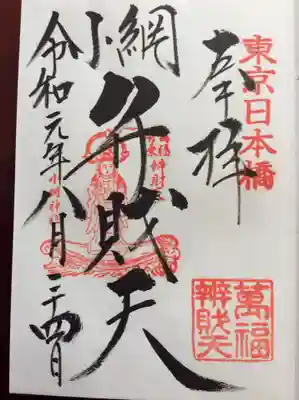 東京日本橋
奉拝
小網
弁財天
令和元年八月二十四日
萬福
辨財天